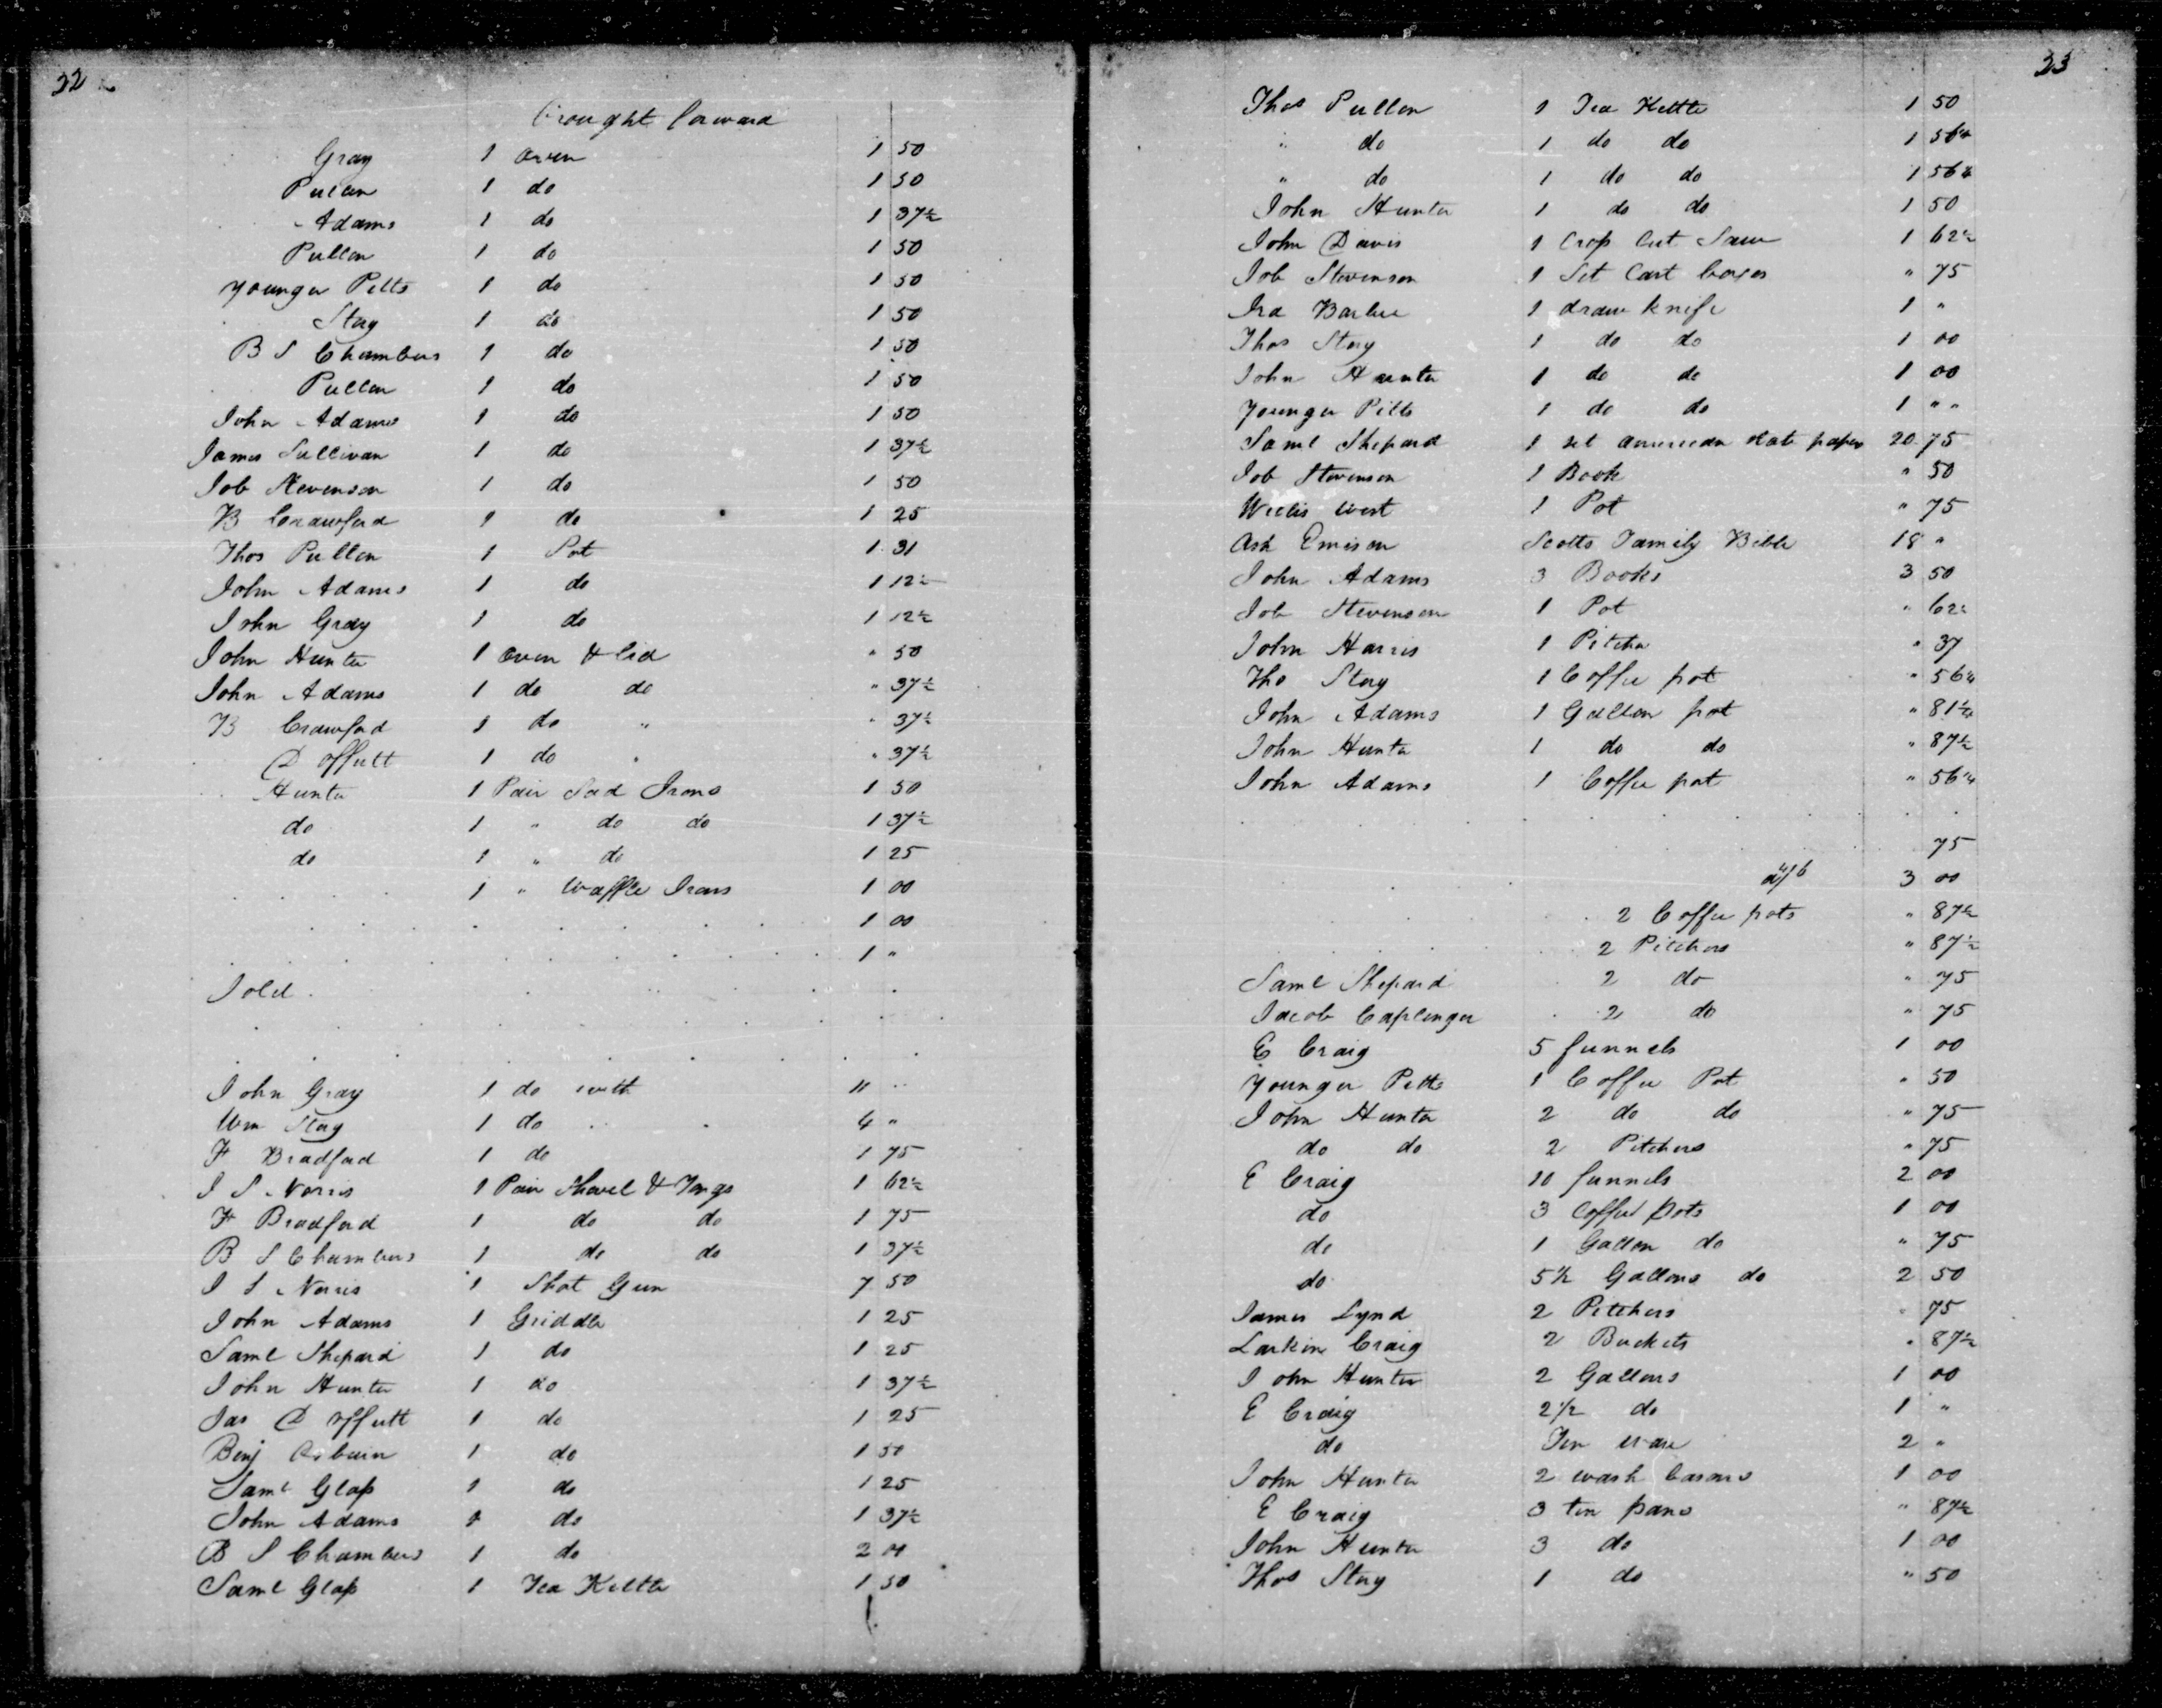 22
brought forward
Gray 1 oven 1 50
Pullen 1 do 1 50
Adams 1 do 1 37½
Pullen 1 do 1 50
Younger Pitts 1 do 1 50
Story 1 do 1 50
B S Chambers 1 do 1 50
Pullen 1 do 1 50
John Adams 1 do 1 50
James Sullivan 1 do 1 37½
Job Stevenson 1 do 1 50
B Crawford 1 do 1 25
Thos Pullen 1 Pot 1 31
John Adams 1 do 1 12½
John Gray 1 do 1 12½
John Hunter 1 oven & lid " 50
John Adams 1 do do " 37½
B Crawford 1 do " " 37½
D Offutt 1 do " " 37½
Hunter 1 Pair Sad Irons 1 50
do 1 " do do 1 37½
do 1 " do 1 25
1 " Waffle Irons 1 00
1 00
1 "
John Gray 1 do with 11 "
Wm Story 1 do 4 "
F Bradford 1 do 1 75
J S Norris 1 Pair Shovel & Tongs 1 62½
F Bradford 1 do do 1 75
B S Chambers 1 do do 1 37½
J S Norris 1 Shot Gun 7 50
John Adams 1 Griddle 1 25
Saml Shepard 1 do 1 25
John Hunter 1 do 1 37½
Jas D Offutt 1 do 1 25
Benj Osburn 1 do 1 50
Saml Glass 1 do 1 25
John Adams 1 do 1 37½
B S Chambers 1 do 2 00
Saml Glass 1 Tea Kettle 1 50
23
Thos Pullen 1 Tea Kettle 1 50
" do 1 do do 1 56¼
" do 1 do do 1 56¼
John Hunter 1 do do 1 50
John Davis 1 Cross Cut Saw 1 62½
Job Stevenson 1 Set Cart boxes " 75
Ira Barbee 1 draw knife 1 "
Thos Story 1 do do 1 00
John Hunter 1 do do 1 00
Younger Pitts 1 do do 1 " "
Saml Shepard 1 set american state papers 20 75
Job Stevenson 1 Book " 50
Willis West 1 Pot " 75
Ash Emison Scotts Family Bible 18 "
John Adams 3 Books 3 50
Job Stevenson 1 Pot " 62½
John Harris 1 Pitcher " 37
Tho Story 1 Coffee pot " 56¼
John Adams 1 Gallon pot " 81¼
John Hunter 1 do do " 87½
John Adams 1 Coffee pot " 56¼
75
3 00
2 Coffee pots " 87½
2 Pitchers " 87½
Saml Shepard 2 do " 75
Jacob Caplinger 2 do " 75
E Craig 5 funnels 1 00
Younger Pitts 1 Coffee Pot " 50
John Hunter 2 do do " 75
do do 2 Pitchers " 75
E Craig 10 funnels 2 00
do 3 Coffee Pots 1 00
do 1 Gallon do " 75
do 5½ Gallons do 2 50
James Lynd 2 Pitchers " 75
Larkin Craig 2 Buckets " 87½
John Hunter 2 Gallons 1 00
E Craig 2½ do 1 "
do Tin ware 2 "
John Hunter 2 wash basons 1 00
E Craig 3 tin pans " 87½
John Hunter 3 do 1 00
Thos Story 1 do " 50